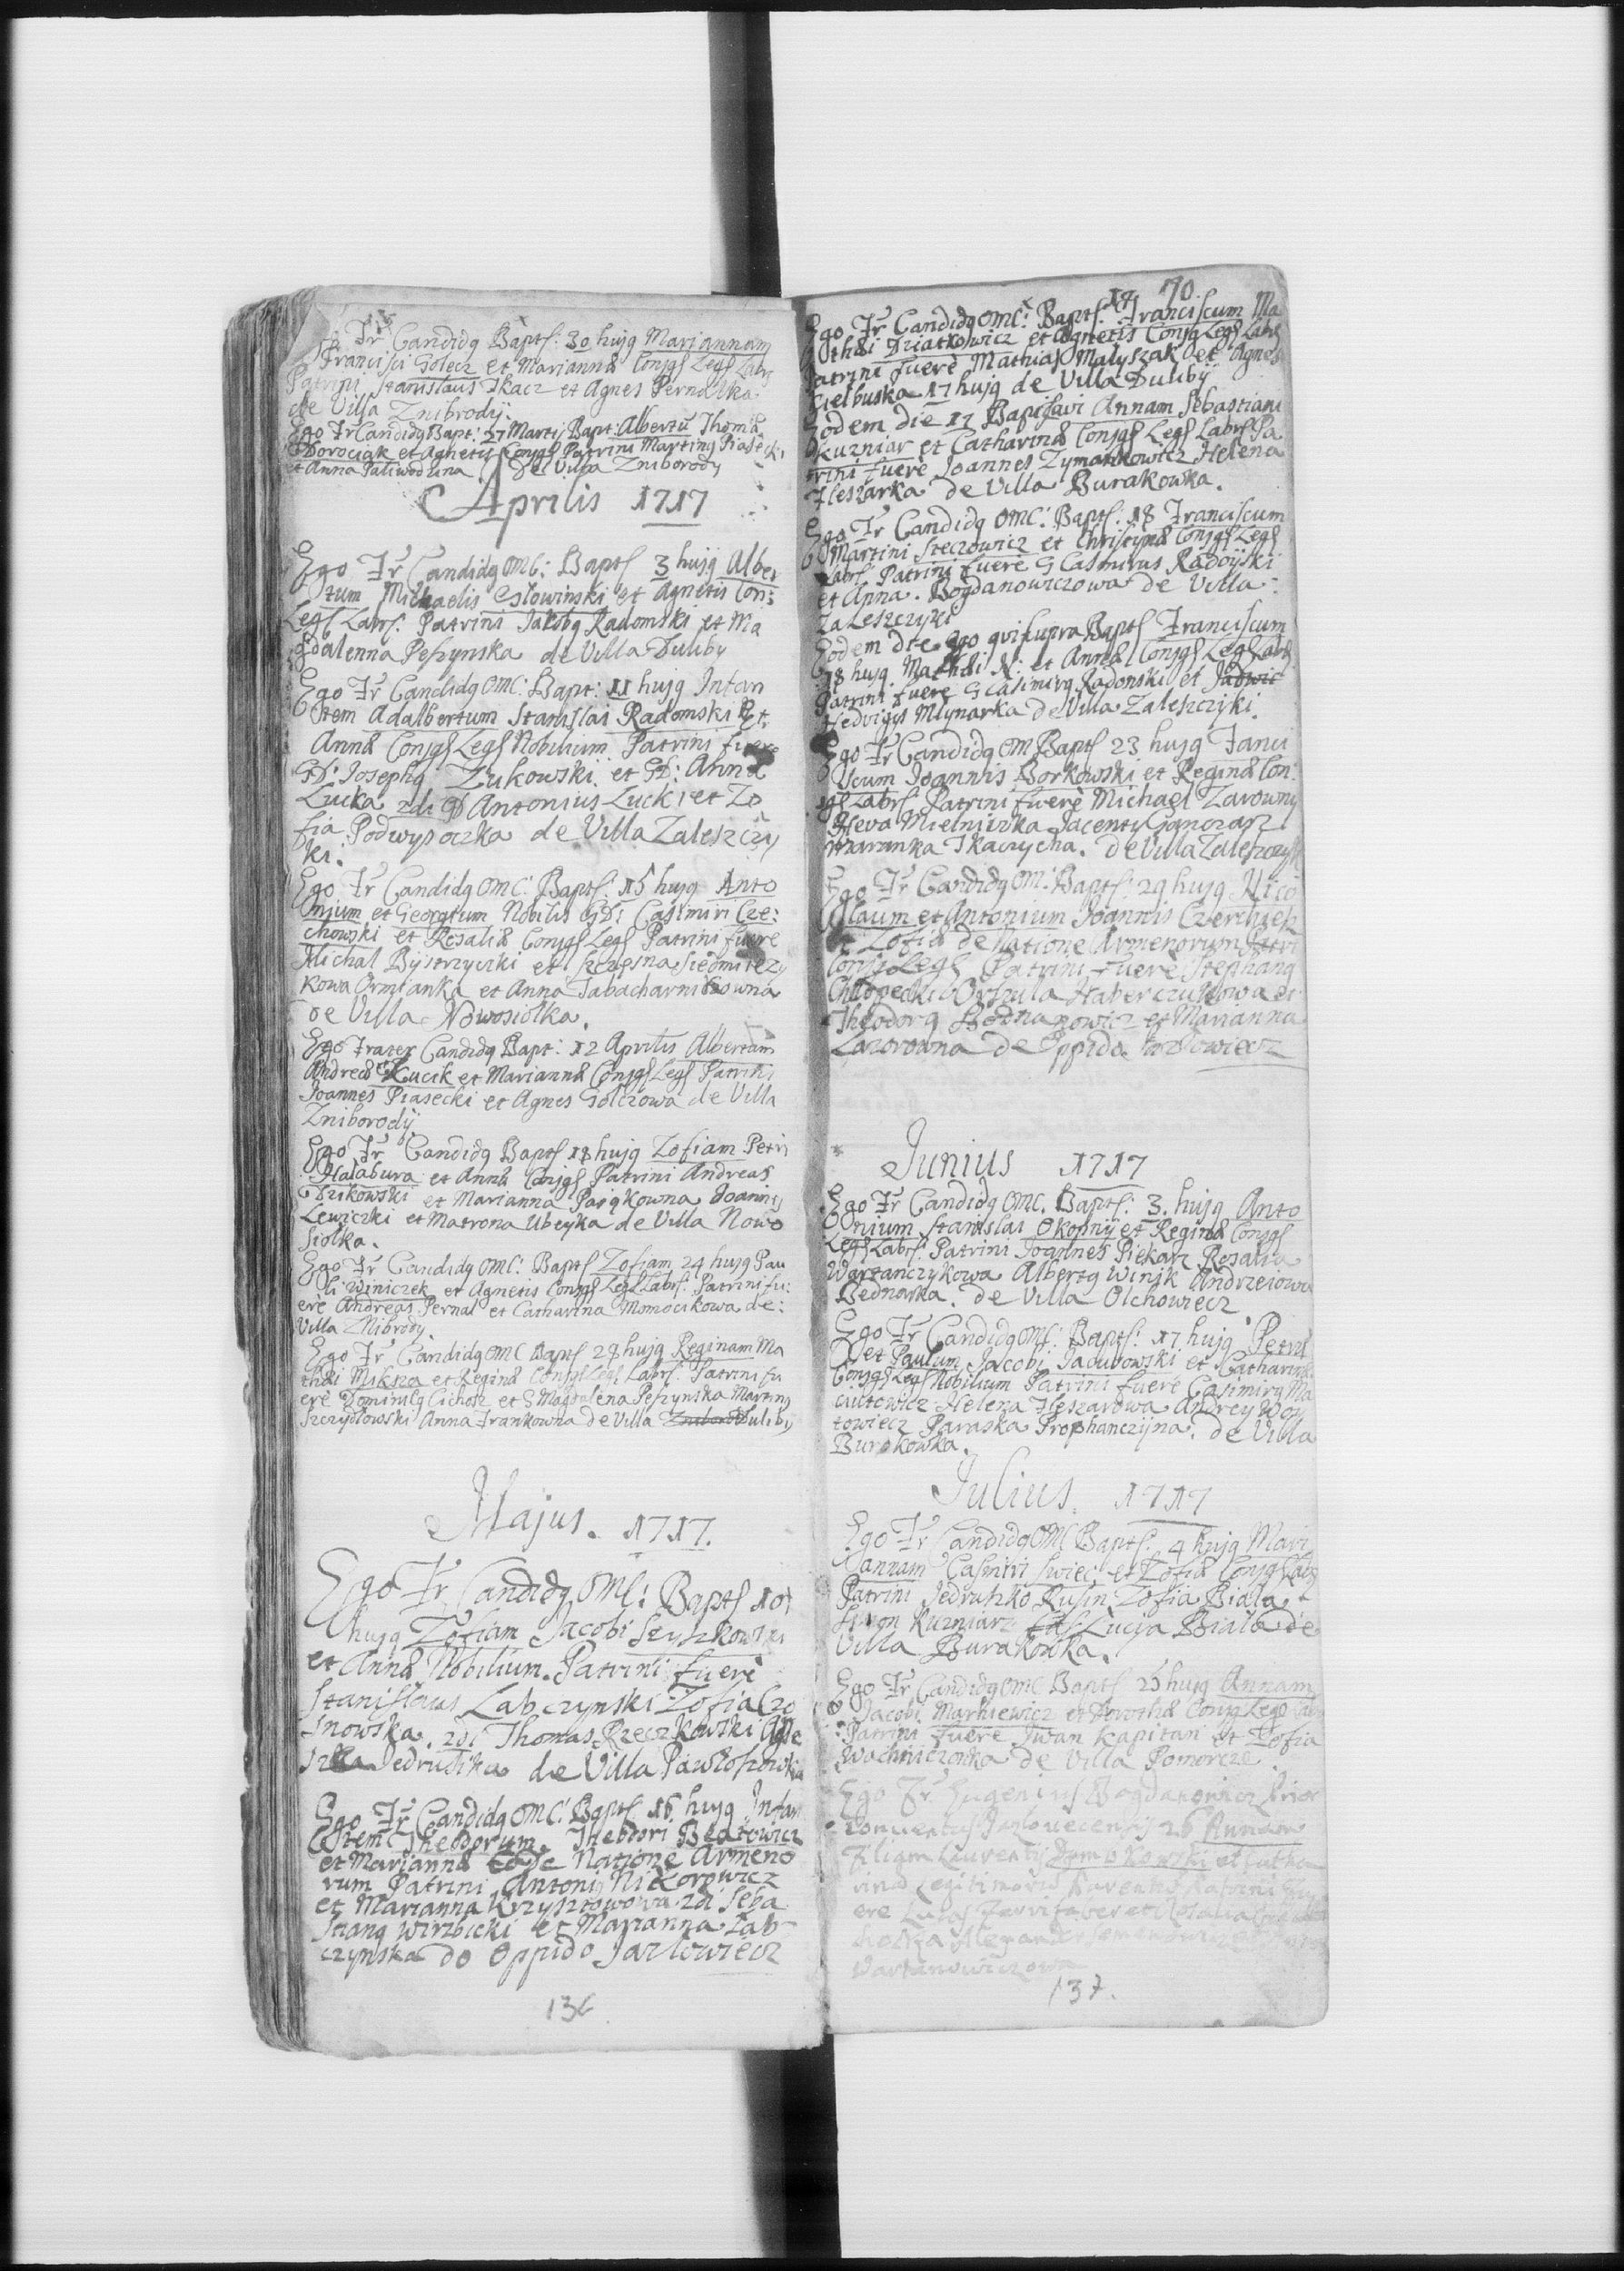 Fr Candidq Baptſ: 30 hujq Mariannam
Francisci Golecz et Mariannæ Conjgſ Legſ Labrſ
Patrini Stanislaus Tkacz et Agnes Pernalka
de Villa Znibrodÿ.
Ego Fr Candidq Bapt: 27 Martij Bapt: Albertũ Thomæ
Dorociak et Agnetis Conjgſ Patrini Martinq Piasecki
et Anna Paliwodzina De Villa Zniborody
Aprilis 1717
Ego Fr Candidq OMC: Baptſ 3 hujq Alber
tum Michaelis Głowinski et Agnetis Con:
Legſ Labrſ: Patrini Jakobq Radomski et Ma
gdalenna Peszynska de Villa Duliby
Ego Fr Candidq OMC: Bapt: 11 hujq Infan
tem Adalbertum Stanislai Radomski Et
Annæ Conjgſ Legſ Nobilium Patrini fuere
GD: Josephq Zukowski et GD: Anna
Lucka 2di D Antonius Lucki et Zo
fia Podwysoczka de Villa Zaleszczy
ki.
Ego Fr Candidq OMC: Baptſ: 15 hujq Anto
nium et Georgium Nobilis GD: Casimiri Cze:
chowski et Rosaliæ Conjgſ Legſ Patrini fuere
Michal Bÿstrzycki et Szczęsna Siedmirczy
kowa Ormianka et Anna Tabacharnikowna
de Villa Nowosiolka.
Ego Frater Candidq Bapt: 12 Aprilis Albertum
Andreæ Kucik et Mariannæ Conjgſ Legſ Patrini
Joannes Piasecki et Agnes Golczowa de Villa
Zniborodÿ.
Ego Fr Candidq Baptſ 18 hujq Zofiam Petri
Halabura et Annæ Conjgſ Patrini Andreas
Dzikowski et Marianna Pasqkowna Joannis
Lewiczki et Matrona Ubeyka de Villa Nowo
siolka.
Ego Fr Candidq OMC: Baptſ Zofiam 24 hujq Pau
li Winiczek et Agnetis Conjgſ Legſ Labrſ: Patrini fu:
ere Andreas Pernal et Catharina Momocikowa de:
Villa Znibrody
Ego Fr Candidq OMC Baptſ 28 hujq Reginam Ma
thæi Miksza et Reginæ Conjgſ Legſ Labrſ: Patrini fu
ere Dominicq Cichosz et G Magdalena Peszynska Martinq
Szczydlowski Anna Frankowna de Villa Duliby
Majus. 1717.
Ego Fr Candidq OMC: Baptſ 10
hujq Zofiam Jacobi
et Annæ Nobilium. Patrini fuerè
Stanislaus Labczynski Zofia Czo
snowska. 2di Thomas Rzeczkowski Agne
Jedrusika de Villa
Ego Fr Candidq OMC: Baptſ 16 hujq Infan
tem Theodorum Theodori Beatowicz
et Mariannæ de Natione Armeno
rum Patrini Antoni Nikorowicz
et Marianna Krzysztowowa 2di Seba
stianq Wirzbicki et Marianna Lab
czynska de Oppido Jazlowiecz
136
70
Ego Fr Candidq OMC: Baptſ: 17 Franciscum Ma
thæi Dziatkowicz et Agnetis Conjgſ Legſ Labrſ
Patrini fuerè Mathias Malyszak et Agnes
Kielbuska 17 hujq de Villa Dulibÿ
Eodem die 17 Baptisavi Annam Sebastiani
Kuzniar et Catharinæ Conjgſ Legſ Labrſ Pa
trini fuere Joannes Zymankowicz Helena
Fleszarka de Villa Burakowka.
Ego Fr Candidq OMC: Baptſ: 18 Franciscum
Martini Steczowicz et Christynæ Conjgſ Legſ
Labrſ Patrini fuere G Casimirus Radoÿski
et Anna Bogdanowiczowa de Villa
Zaleszczyki
Eodem die Ego qvi supra Baptſ Franciscum
18 hujq Mathæi N: et Annæ Conjgſ Legſ Labrſ
Patrini fuere G Casimirq Radonski et Jadwic
Hedvigis Mlynarka de Villa Zaleszczÿki.
Ego Fr Candidq OM Baptſ 23 hujq Fanci
scum Joannis Borkowski et Reginæ Con:
jgſ Labrſ: Patrini fuerè Michael Zarowny
Heva Mielniczka Jacenty Ganczarz
Maranka Tkaczycha. de Villa Zaleszczyk
Ego Fr Candidq OM: Baptſ: 29 hujq Nico
laum et Antonium Joannis
et Zofiæ de Natione Armenorum
Conjg Legſ Patrini fuerè Stephanq
Orszula Haberczukowa et
Theodorq Bodnanowicz et Marianna
Lazorowna de Oppido Jazlowiecz
Junius 1717
Ego Fr Candidq OMC. Baptſ: 3. hujq Anto
nium Stanislai Okopnÿ et Reginæ Conjgſ
Legſ Labrſ: Patrini Joannes Piekarz Rosalia
Wartanczykowa Albertq Winik Andrzeiowa
Bednarka. de Villa Olchowiecz
Ego Fr Candidq OMC: Baptſ: 17 hujq Petrũ
et Paulum Jacobi Jacubowski et Catharinæ
Conjgſ Legſ Nobilium Patrini fuere Casimirq Ma
ciutowicz Helena Fleszarowa Andrey Woy
towiecz Paraska Prophanczÿna. de Villa
Burakowka.
Julius. 1717
Ego Fr Candidq OMC Baptſ: 4 hujq Mari
annam Casimiri Swiec et Zofiæ Conjgſ Labrſ
Patrini Jedruszko Rusin Zofia Biala
Simon Kuzniarz Lucija Biala de
Villa Burakowka.
Ego Fr Candidq OMC Baptſ 25 hujq Annam
Jacobi Markiewicz et Conjg Legſ Labrſ
Patrini fuere Iwan Kapitan et Zofia
Wachniczonka de Villa Pomorcze.
Ego Fr. Eugenius Bogdanowicz Prior
Conventus Jaslovecensis 26 Annam
Filiam Laurentij Dembkowski et Catha
rinæ Legitimorũ Parentũ Patrini fu
ere Lucas et Rosalia
Alexander
Wartanowiczowa
137.